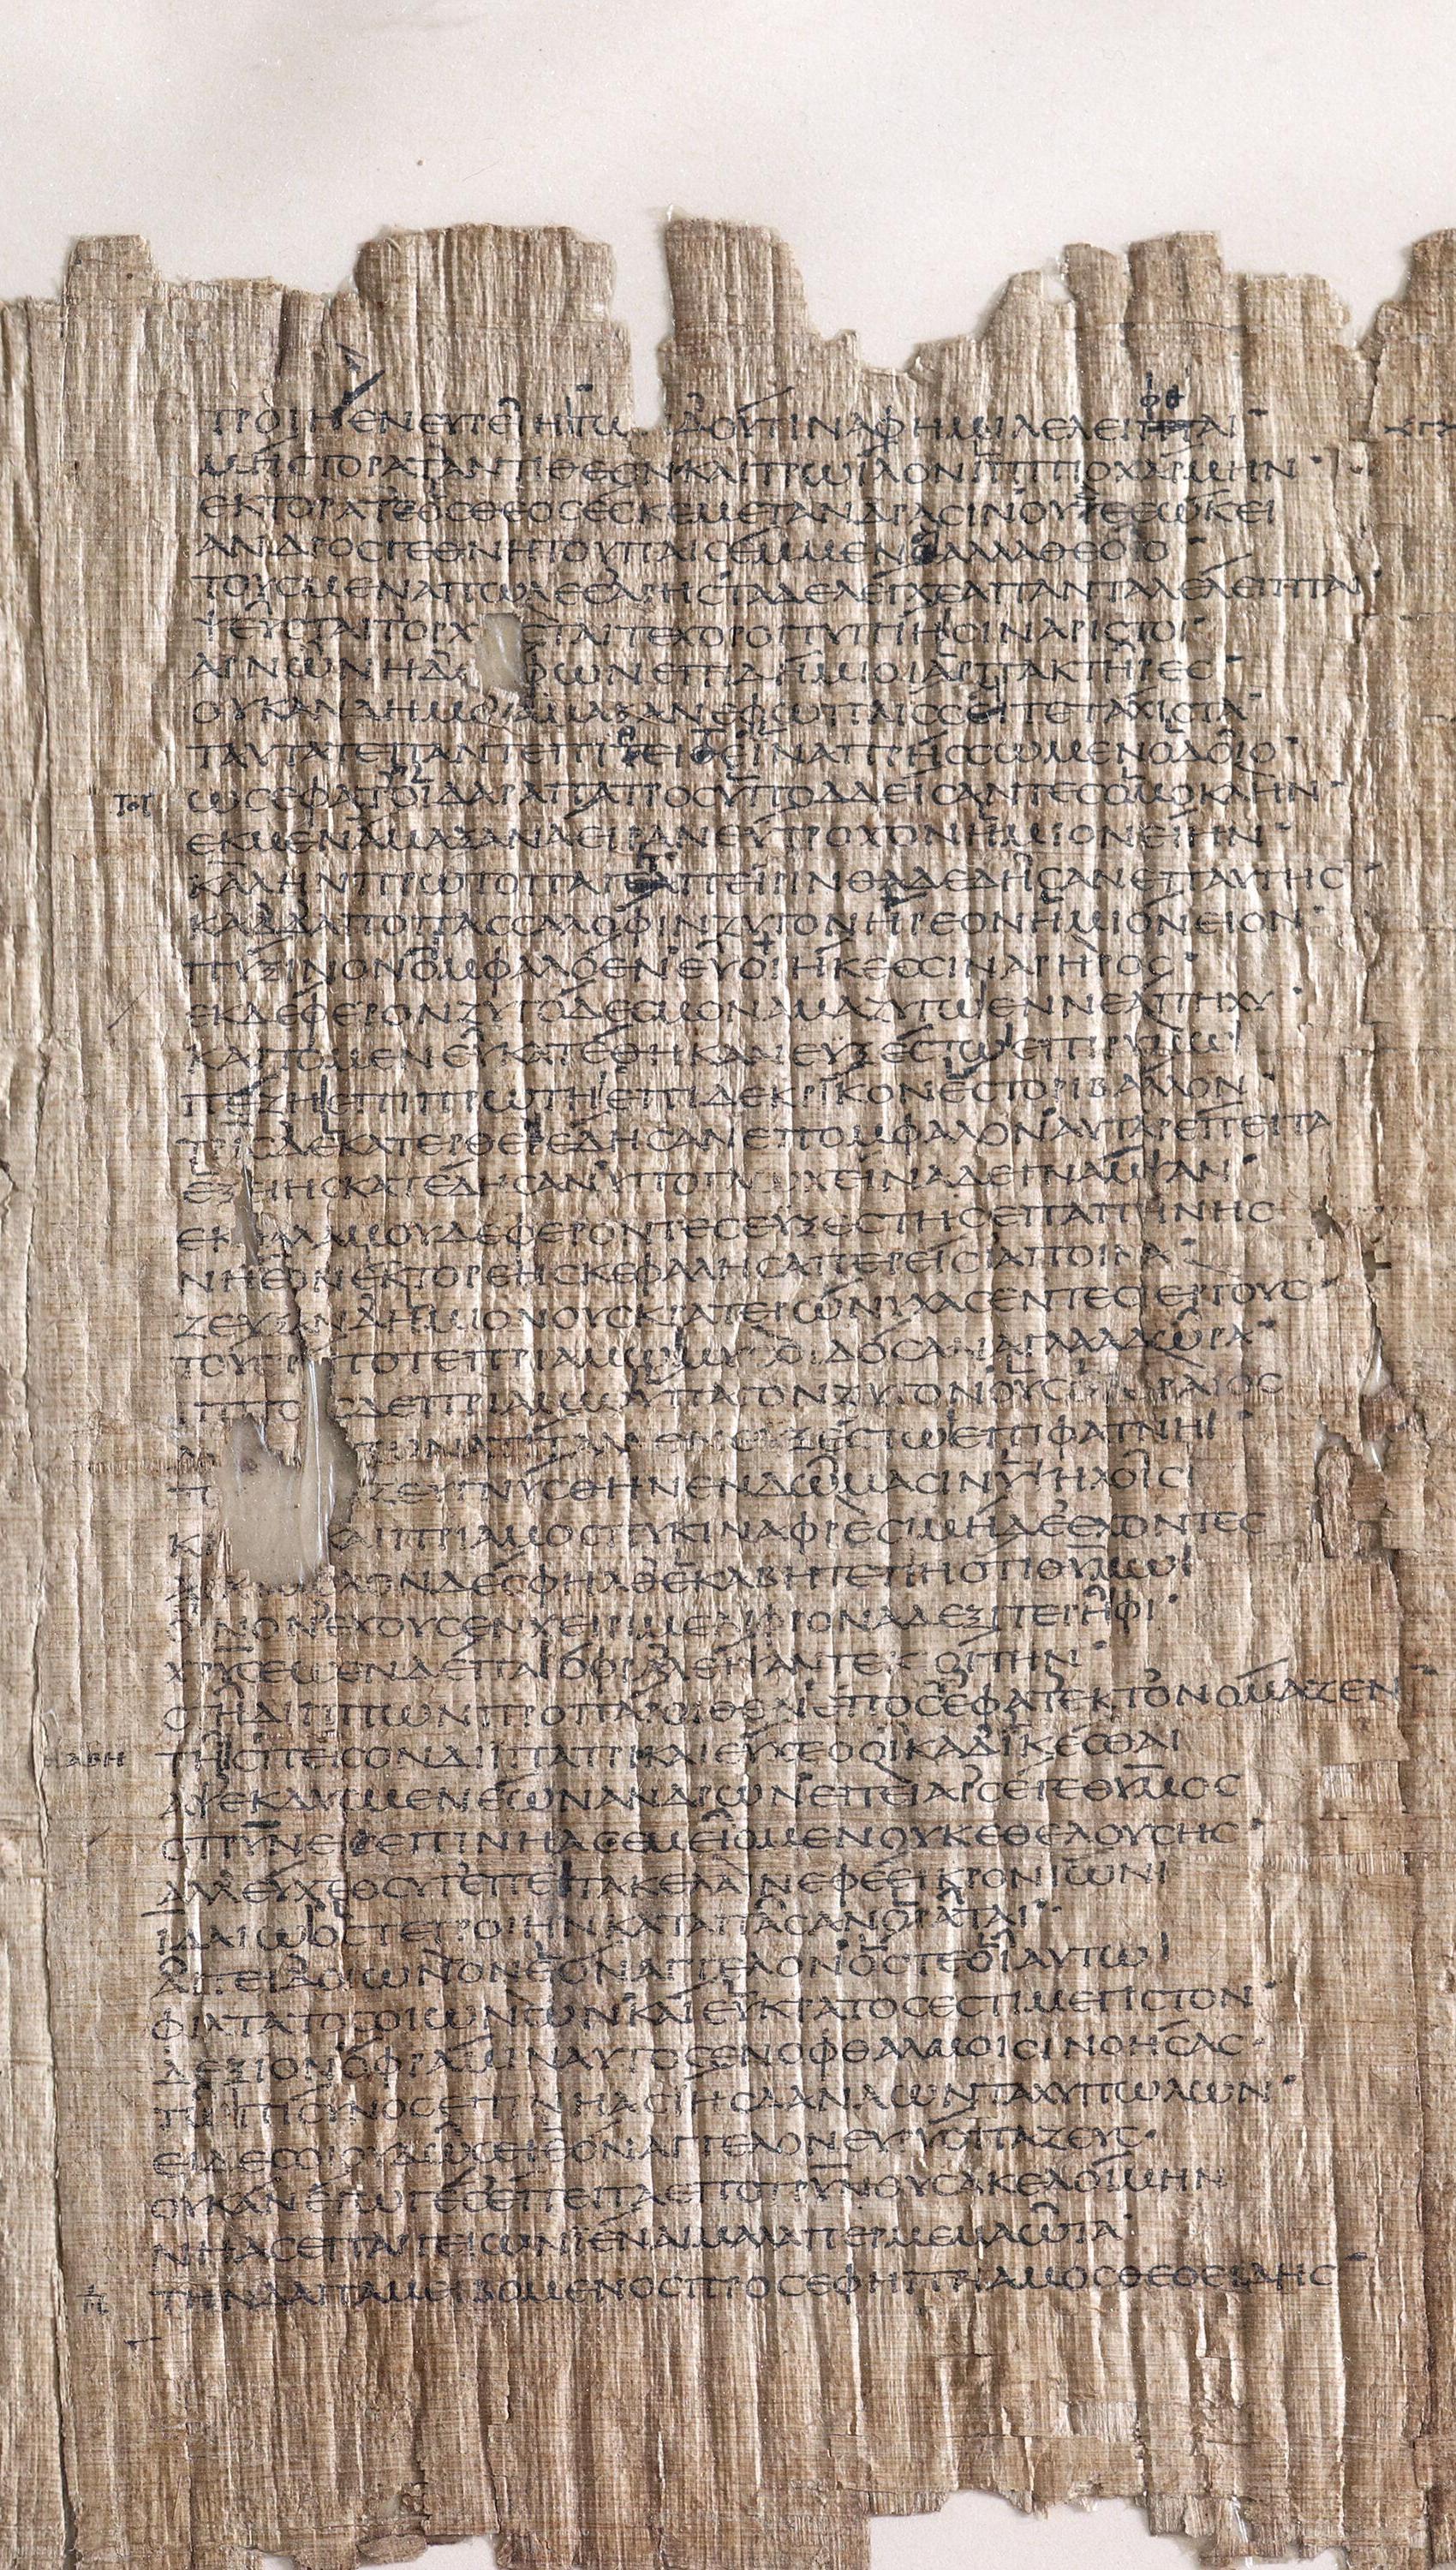 ΤΡΟΙΗΙΕΝΕΥΡΕΙΗΙΤΩ ΔΟΥΤΙΝΑΦΗΜΙΛΕΛΕΙΦΘΑΙ
ΜΗϹΤΟΡΑΤΑΝΤΙΘΕΟΝΚΑΙΤΡΩΙΛΟΝΙΠΠΙΟΧΑΡΜΗΝ
ΕΚΤΟΡΑΤΕΟϹΘΕΟϹΕϹΚΕΜΕΤΑΝΔΡΑϹΙΝΟΥΔΕΕΩΚΕΙ
ΑΝΔΡΟϹΓΕΘΝΗΤΟΥΠΑΙϹΕΜΜΕΝΑΙΑΛΛΑΘΕΟΙΟ
ΤΟΥϹΜΕΝΑΠΩΛΕϹΑΡΗϹΤΑΔΕΛΕΓΧΕΑΠΑΝΤΑΛΕΛΕΙΠΤΑΙ
ΨΕΥϹΤΑΙΤΟΡΧ ϹΤΑΙΤΕΧΟΡΟΙΤΥΠΙΗΙϹΙΝΑΡΙϹΤΟΙ
ΑΡΝΩΝΗΔΕ ΦΩΝΕΠΙΔΗΜΙΟΙΑΡΠΑΚΤΗΡΕϹ
ΟΥΚΑΝΔΗΜΟΙΑΜΑΞΑΝΕΦΩΠΛΙϹϹΑΙΤΕΤΑΧΙϹΤΑ
ΤΑΥΤΑΤΕΠΑΝΤΕΠΙΘΕΙΤΕΙΝΑΠΡΗϹϹΩΜΕΝΟΔΟΙΟ
ΩϹΕΦΑΤΟΙΔΑΡΑΠΑΤΡΟϹΥΠΟΔΔΕΙϹΑΝΤΕϹΟΜΟΚΛΗΝ
ΕΚΜΕΝΑΜΑΞΑΝΑΕΙΡΑΝΕΥΤΡΟΧΟΝΗΜΙΟΝΕΙΗΝ
ΚΑΛΗΝΠΡΩΤΟΠΑΓΕΑΠΕΙΡΙΝΘΑΔΕΔΗϹΑΝΕΠΑΥΤΗϹ
ΚΑΔΔΑΠΟΠΑϹϹΑΛΟΦΙΝΖΥΓΟΝΗΡΕΟΝΗΜΙΟΝΕΙΟΝ
ΠΥΞΙΝΟΝΟΜΦΑΛΟΕΝΕΥΟΙΗΚΕϹϹΙΝΑΡΗΡΟϹ
ΕΚΔΕΦΕΡΟΝΖΥΓΟΔΕϹΜΟΝΑΜΑΖΥΓΩΙΕΝΝΕΑΠΗΧΥ
ΚΑΙΤΟΜΕΝΕΥΚΑΤΕΘΗΚΑΝΕΥΞΕϹΤΩΙΕΠΙΡΥΜΩΙ
ΠΕΖΗΙΕΠΙΠΡΩΤΗΙΕΠΙΔΕΚΡΙΚΟΝΕϹΤΟΡΙΒΑΛΛΟΝ
ΤΡΙϹΔΕΚΑΤΕΡΘΕΝΕΔΗϹΑΝΕΠΟΜΦΑΛΟΝΑΥΤΑΡΕΠΕΙΤΑ
ΕΞΕΙΗϹΚΑΤΕΔΗϹΑΝΥΠΟΓΛΩΧΕΙΝΑΔΕΓΝΑΜΨΑΝ
ΕΚΘΑΛΑΜΟΥΔΕΦΕΡΟΝΤΕϹΕΥΞΕϹΤΗϹΕΠΑΠΗΝΗϹ
ΝΗΕΟΝΕΚΤΟΡΕΗϹΚΕΦΑΛΗϹΑΠΕΡΕΙϹΙΑΠΟΙΝΑ
ΖΕΥΞΑΝΔΗΜΙΟΝΟΥϹΚΡΑΤΕΡΩΝΥΧΑϹΕΝΤΕϹΙΕΡΓΟΥϹ
ΤΟΥϹΡ ΠΟΤΕΠΡΙΑΜΩΙΜΥϹΟΙΔΟϹΑΝΑΓΛΑΑΔΩΡΑ
ΙΠΠΟ ϹΔΕΠΡΙΑΜΩΙΥΠΑΓΟΝΖΥΓΟΝΟΥϹΟ ΡΑΙΟϹ
ΕΥΞΕϹΤΩΙΕΠΙΦΑΤΝΗΙ
Τ ΖΕΥΓΝΥϹΘΗΝΕΝΔΩΜΑϹΙΝΥΨΗΛΟΙϹΙ
ΚΗ ΚΑΙΠΡΙΑΜΟϹΠΥΚΙΝΑΦΡΕϹΙΜΗΔΕΕΧΟΝΤΕϹ
ΑΓΧΙΜΟΛΟΝΔΕϹΦΗΛΘΕΚΑΒΗΤΕΤΙΗΟΤΙΘΥΜΩΙ
ΟΙΝΟΝΕΧΟΥϹΕΝΧΕΙΡΙΜΕΛΙΦΡΟΝΑΔΕΞΙΤΕΡΗΦΙ
ΧΡΥϹΕΩΙΕΝΔΕΠΑΙΟΦΡΑΛΕΙΨΑΝΤΕΚΙΟΙΤΗΝ
ϹΤΗΔΙΠΠΩΝΠΡΟΠΑΡΟΙΘΕΝΕΠΟϹΕΦΑΤΕΚΤΟΝΟΜΑΖΕΝ
ΤΗϹΠΕΙϹΟΝΔΙΙΠΑΤΡΙΚΑΙΕΥΧΕΟΟΙΚΑΔΙΚΕϹΘΑΙ
ΑΨΕΚΔΥϹΜΕΝΕΩΝΑΝΔΡΩΝΕΠΕΙΑΡϹΕΓΕΘΥΜΟϹ
ΟΤΡΥΝΕΙΕΠΙΝΗΑϹΕΜΕΙΟΜΕΝΟΥΚΕΘΕΛΟΥϹΗϹ
ΑΛΛΕΥΧΕΟϹΥΓΕΠΕΙΤΑΚΕΛΑΙΝΕΦΕΕΙΚΡΟΝΙΩΝΙ
ΙΔΑΙΩΙΟϹΤΕΤΡΟΙΗΝΚΑΤΑΠΑϹΑΝΟΡΑΤΑΙ
ΑΙΤΕΙΔΟΙΩΝΟΝΕΟΝΑΓΓΕΛΟΝΟϹΤΕΟΙΑΥΤΩΙ
ΦΙΛΤΑΤΟϹΟΙΩΝΩΝΚΑΙΕΥΚΡΑΤΟϹΕϹΤΙΜΕΓΙϹΤΟΝ
ΔΕΞΙΟΝΟΦΡΑΜΙΝΑΥΤΟϹΕΝΟΦΘΑΛΜΟΙϹΙΝΟΗϹΑϹ
ΤΩΙΠΙϹΥΝΟϹΕΠΙΝΗΑϹΙΗϹΔΑΝΑΩΝΤΑΧΥΠΩΛΩΝ
ΕΙΔΕΤΟΙΟΥΔΩϹΕΙΕΟΝΑΓΓΕΛΟΝΕΥΡΥΟΠΑΖΕΥϹ
ΟΥΚΑΝΕΓΩΓΕϹΕΠΕΙΤΑΕΠΟΤΡΥΝΟΥϹΑΚΕΛΟΙΜΗΝ
ΝΗΑϹΕΠΑΡΓΕΙΩΝΙΕΝΑΙΜΑΛΑΠΕΡΜΕΜΑΩΤΑ
ΤΗΝΔΑΠΑΜΕΙΒΟΜΕΝΟϹΠΡΟϹΕΦΗΠΡΙΑΜΟϹΘΕΟΕΙΔΗϹ